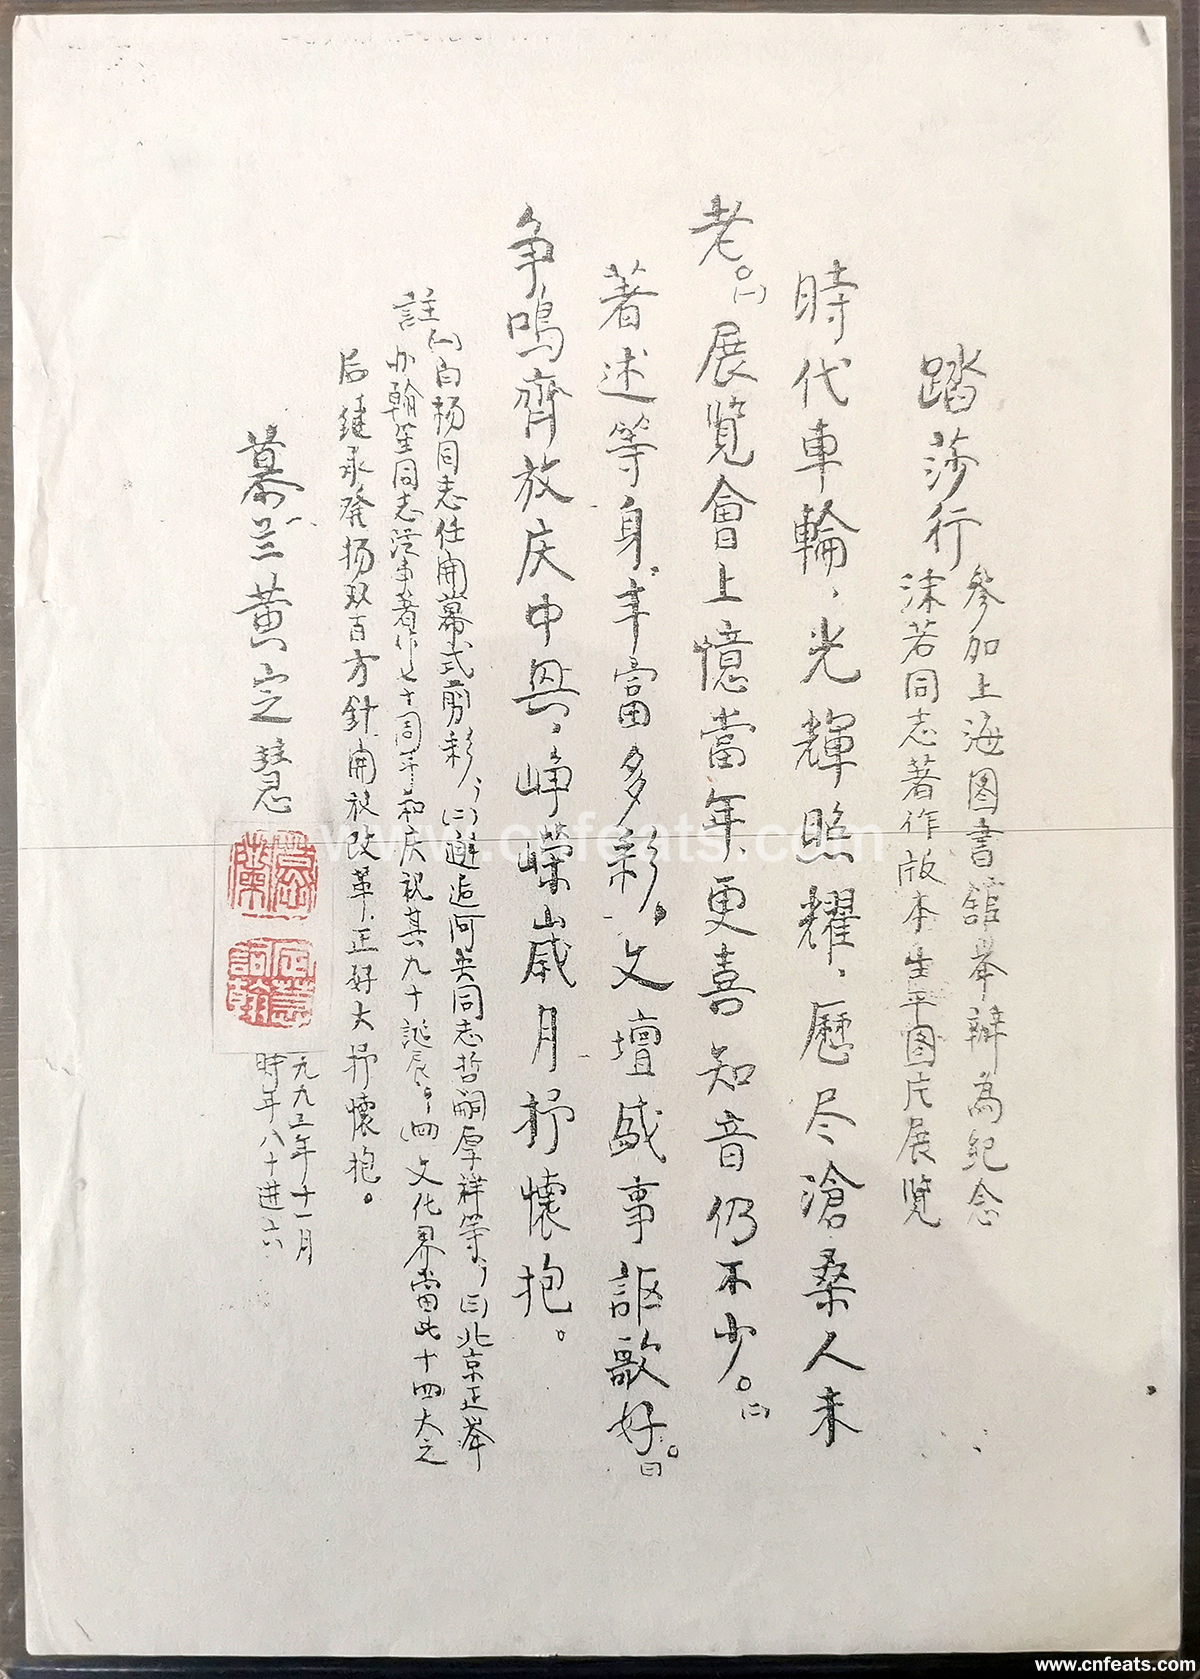 踏莎行
參加上海图書舘举辦為紀念
沫若同志著作版本生平图片展覽
時代車輪，光輝照耀，歷尽滄桑人未
老。㈠展覽會上憶當年，更喜知音仍不少。㈡
著述等身，丰富多彩，文壇盛事謳歌好。㈢
争鳴齊放庆中兴，峥嶸歲月抒懷抱。
註㈠白杨同志任開幕式剪彩，㈡邂逅阿英同志哲嗣厚祥等，㈢北京正举
办翰笙同志從事著作七十周年和庆祝其九十誕辰。㈣文化界當此十四大之
后继承發扬双百方針開放改革，正好大抒懷抱。
慕兰黄定慧
慕蘭
定慧詞翰
一九九二年十一月
時年八十进六
www.cnfeats.com
www.cnfeats.com